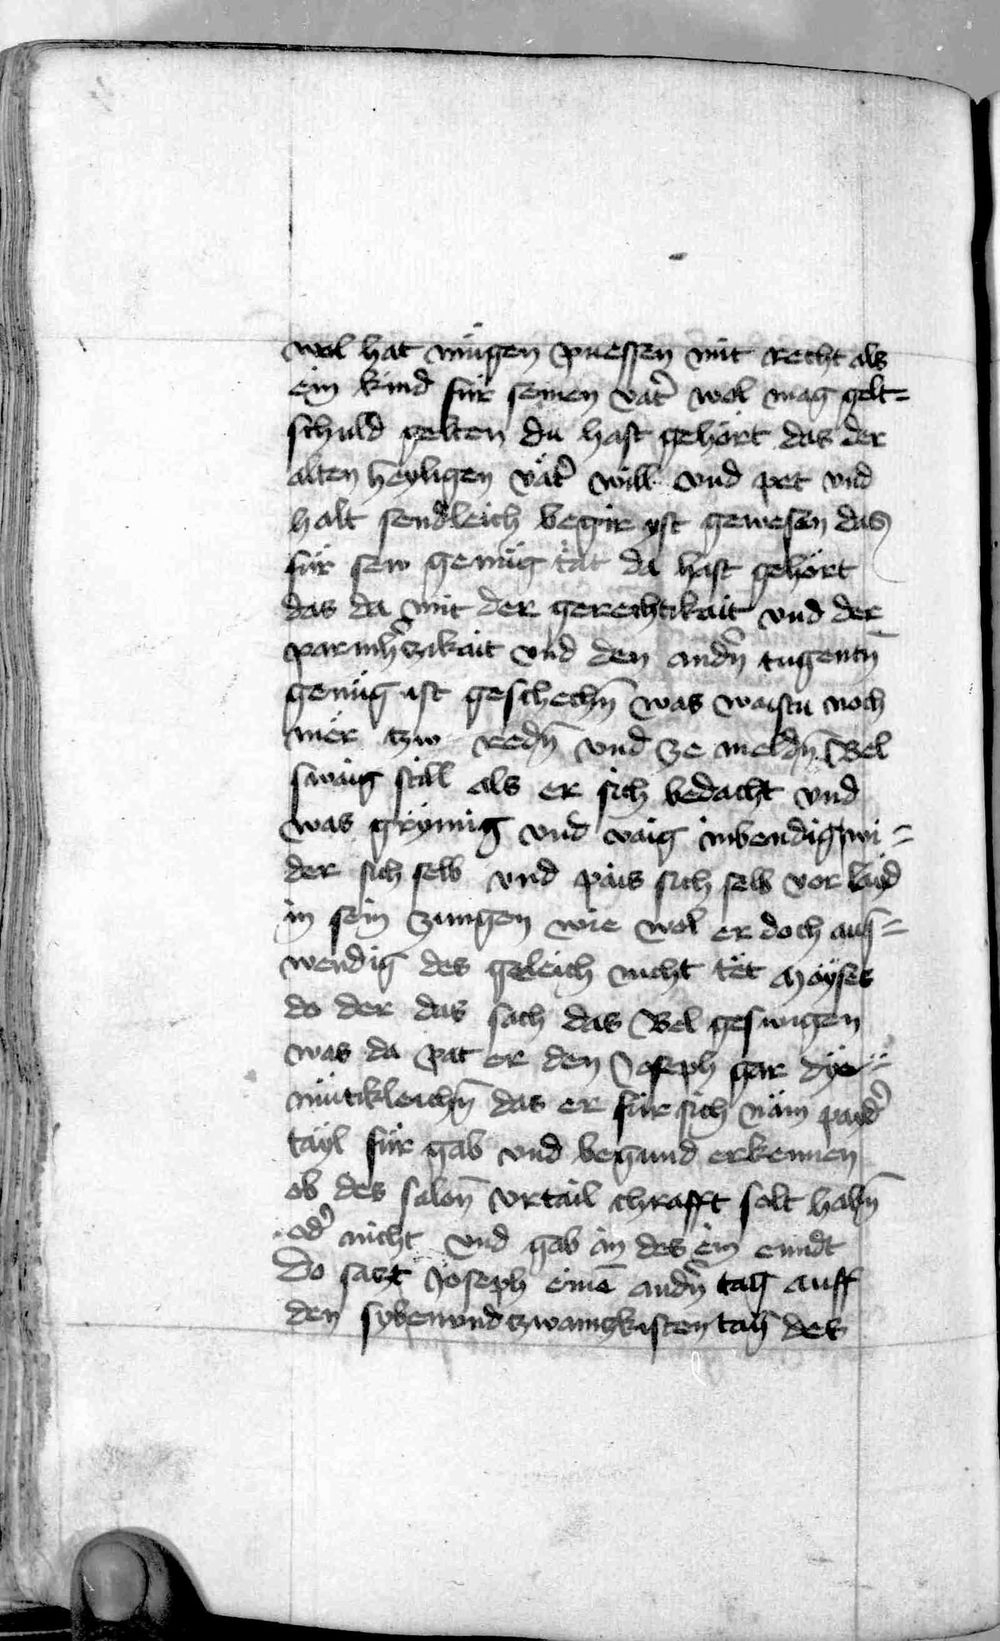 wol hat mügen puessen mit recht als
ein kind für seinen vat̉ wol mag gelt=
schuld gelten du hast gehört das der
alten heyligen vät̉ will vnd pet vnd
halt sendleich begir yst gewesen das
für sew genüg tät da hast gehört
das da mit der gerechtikait vnd der
parmh̉czikait vnd den andn̉ tugentn̄
genüg ist geschechn̄ was waistu noch
mer tzw redn̄ vnd ze meldn̄ Bel
swaig still als er sich bedacht vnd
was grymig vnd vaig inbendig wi=
der sich selb vnd pais sich selb vor laid
in sein zungen wie wol er doch aus=
wendig des geleich nicht tët Moyses
do der das sach das Bel geswigen
was da pat er den Joseph gar dye=
mütikleichn̄ das er für sich näm payd̉
tayl für gab vnd begund erkennen
ob des salon̄ vrtail chrafft solt habn̄
od̉ nicht vnd gab in des ein enndt
Do sact Joseph einē andn̉ tag auff
den sybenvndtzwainchkisten tag des